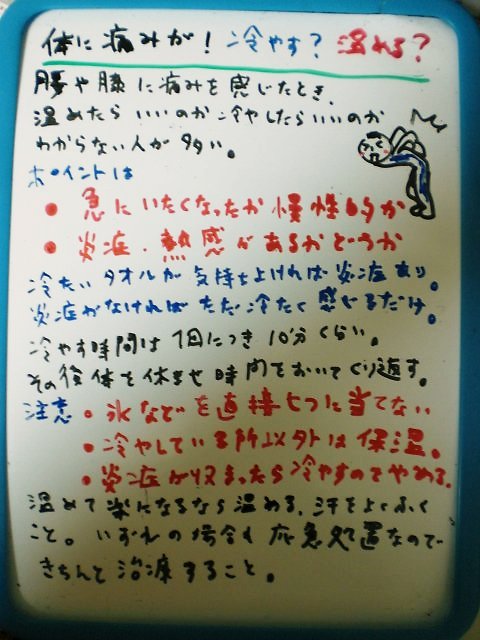 体に痛みが！冷やす？温める？
腰や膝に痛みを感じたとき、
温めたらいいのか冷やしたらいいのか
わからない人が多い。
ポイントは
• 急にいたくなったか慢性的か
• 炎症・熱感があるかどうか
冷たいタオルが気持ちよければ炎症あり。
炎症がなければただ冷たく感じるだけ。
冷やす時間は1回につき10分くらい。
その後体を休ませ時間をおいてくり返す。
注意 • 氷などを直接ヒフに当てない
• 冷やしている所以外は保温。
• 炎症が収まったら冷やすのでやめる。
温めて楽になるなら温める。汗をよくふく
こと。いずれの場合も応急処置なので
きちんと治療すること。